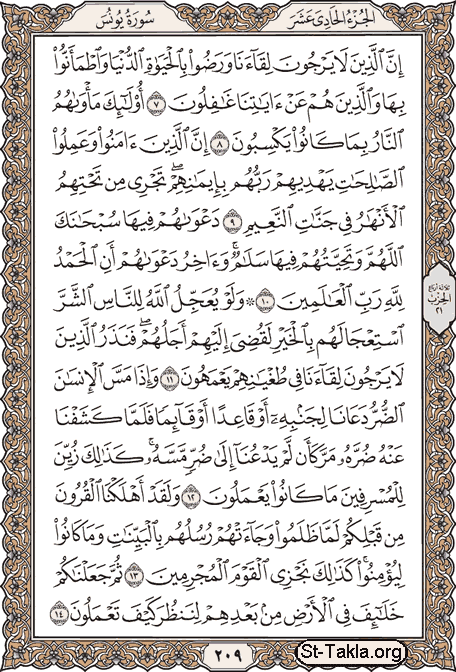 الجزء الحادى عشر
سورة يونس
إِنَّ ٱلَّذِينَ لَا يَرۡجُونَ لِقَآءَنَا وَرَضُواْ بِٱلۡحَيَوٰةِ ٱلدُّنۡيَا وَٱطۡمَأَنُّواْ
بِهَا وَٱلَّذِينَ هُمۡ عَنۡ ءَايَٰتِنَا غَٰفِلُونَ ٧ أُوْلَٰٓئِكَ مَأۡوَىٰهُمُ
ٱلنَّارُ بِمَا كَانُواْ يَكۡسِبُونَ ٨ إِنَّ ٱلَّذِينَ ءَامَنُواْ وَعَمِلُواْ
ٱلصَّٰلِحَٰتِ يَهۡدِيهِمۡ رَبُّهُم بِإِيمَٰنِهِمۡۖ تَجۡرِي مِن تَحۡتِهِمُ
ٱلۡأَنۡهَٰرُ فِي جَنَّٰتِ ٱلنَّعِيمِ ٩ دَعۡوَىٰهُمۡ فِيهَا سُبۡحَٰنَكَ
ٱللَّهُمَّ وَتَحِيَّتُهُمۡ فِيهَا سَلَٰمٞۚ وَءَاخِرُ دَعۡوَىٰهُمۡ أَنِ ٱلۡحَمۡدُ
لِلَّهِ رَبِّ ٱلۡعَٰلَمِينَ ١٠ ۞ وَلَوۡ يُعَجِّلُ ٱللَّهُ لِلنَّاسِ ٱلشَّرَّ
ٱسۡتِعۡجَالَهُم بِٱلۡخَيۡرِ لَقُضِيَ إِلَيۡهِمۡ أَجَلُهُمۡۖ فَنَذَرُ ٱلَّذِينَ
لَا يَرۡجُونَ لِقَآءَنَا فِي طُغۡيَٰنِهِمۡ يَعۡمَهُونَ ١١ وَإِذَا مَسَّ ٱلۡإِنسَٰنَ
ٱلضُّرُّ دَعَانَا لِجَنۢبِهِۦٓ أَوۡ قَاعِدًا أَوۡ قَآئِمٗا فَلَمَّا كَشَفۡنَا
عَنۡهُ ضُرَّهُۥ مَرَّ كَأَن لَّمۡ يَدۡعُنَآ إِلَىٰ ضُرّٖ مَّسَّهُۥۚ كَذَٰلِكَ زُيِّنَ
لِلۡمُسۡرِفِينَ مَا كَانُواْ يَعۡمَلُونَ ١٢ وَلَقَدۡ أَهۡلَكۡنَا ٱلۡقُرُونَ
مِن قَبۡلِكُمۡ لَمَّا ظَلَمُواْ وَجَآءَتۡهُمۡ رُسُلُهُم بِٱلۡبَيِّنَٰتِ وَمَا كَانُواْ
لِيُؤۡمِنُواْۚ كَذَٰلِكَ نَجۡزِي ٱلۡقَوۡمَ ٱلۡمُجۡرِمِينَ ١٣ ثُمَّ جَعَلۡنَٰكُمۡ
خَلَٰٓئِفَ فِي ٱلۡأَرۡضِ مِنۢ بَعۡدِهِمۡ لِنَنظُرَ كَيۡفَ تَعۡمَلُونَ ١٤
ثلاثة أرباع
الحزب
٢١
٢٠٩
St-Takla.org